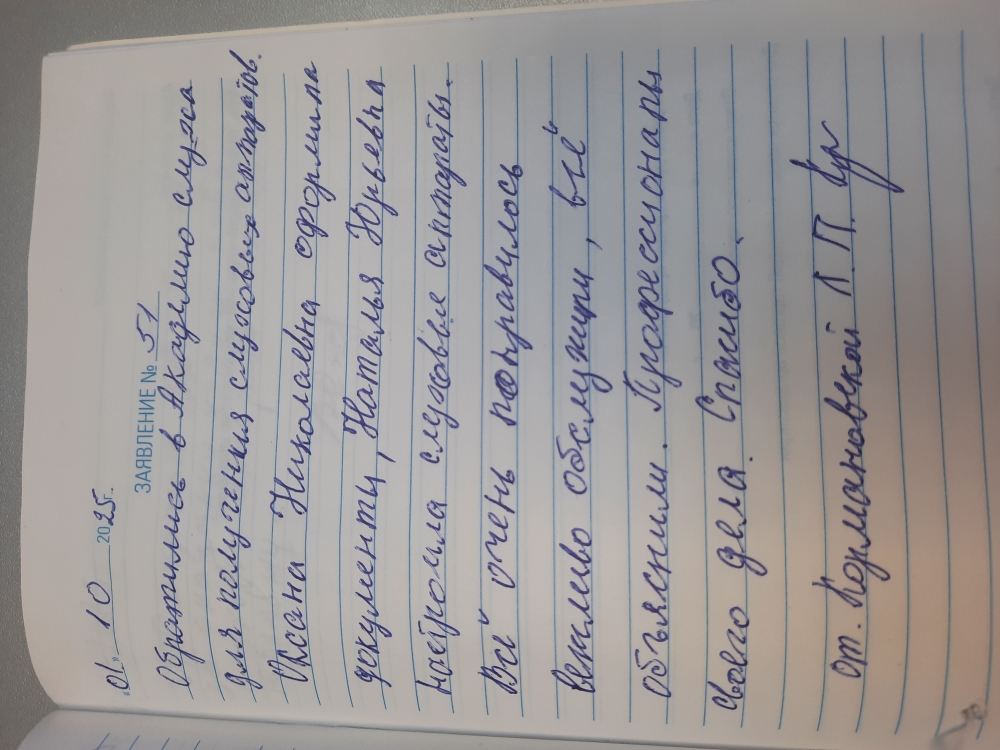 "01." 10 2025г.
ЗАЯВЛЕНИЕ № 51
Обратились в Академию слуха
для получения слуховых аппаратов.
Оксана Николаевна оформила
документы, Наталья Юрьевна
настроила слуховые аппараты.
Всё очень понравилось
вежливо обслужили, всё
объяснили. Профессионалы
своего дела. Спасибо.
от. П. П.